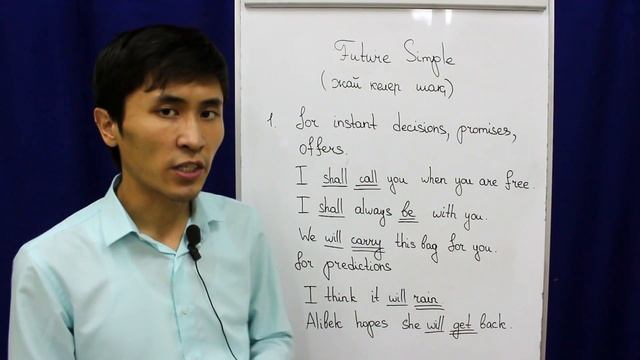 Future Simple
(жай келер шақ)
1. for instant decisions, promises,
offers.
I shall call you when you are free.
I shall always be with you.
We will carry this bag for you.
for predictions
I think it will rain
Alibek hopes she will get back.